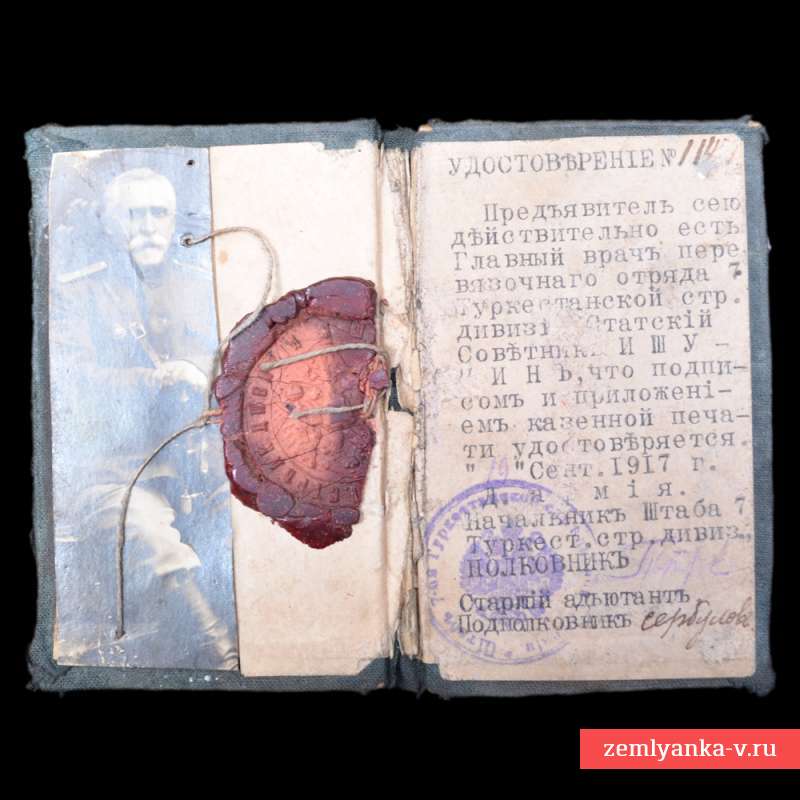 УДОСТОВѢРЕНІЕ №
Предъявитель сею
дѣйствительно есть
Главный врачъ пере
вязочнаго отряда 7
Туркестанской стр.
дивизі Статскій
Совѣтникъ И Ш У -
" И Н Ъ, что подпи-
сомъ и приложені-
емъ казенной печа-
ти удостовѣряется.
" "Сент. 1917 г.
Д. а р м і я.
Начальникъ Штаба 7
Туркест. стр. дивиз.,
ПОЛКОВНИКЪ
Старшій адъютантъ
Подполковникъ
zemlyanka-v.ru